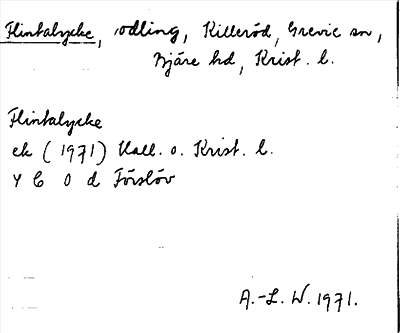 Flintalycke, odling, Killeröd, Grevie sn,
Bjäre hd, Krist. l.
Flintalycke
ek (1971) Hall. o. Krist. l.
4 C 0 d Förslöv
A.-L. W. 1971.